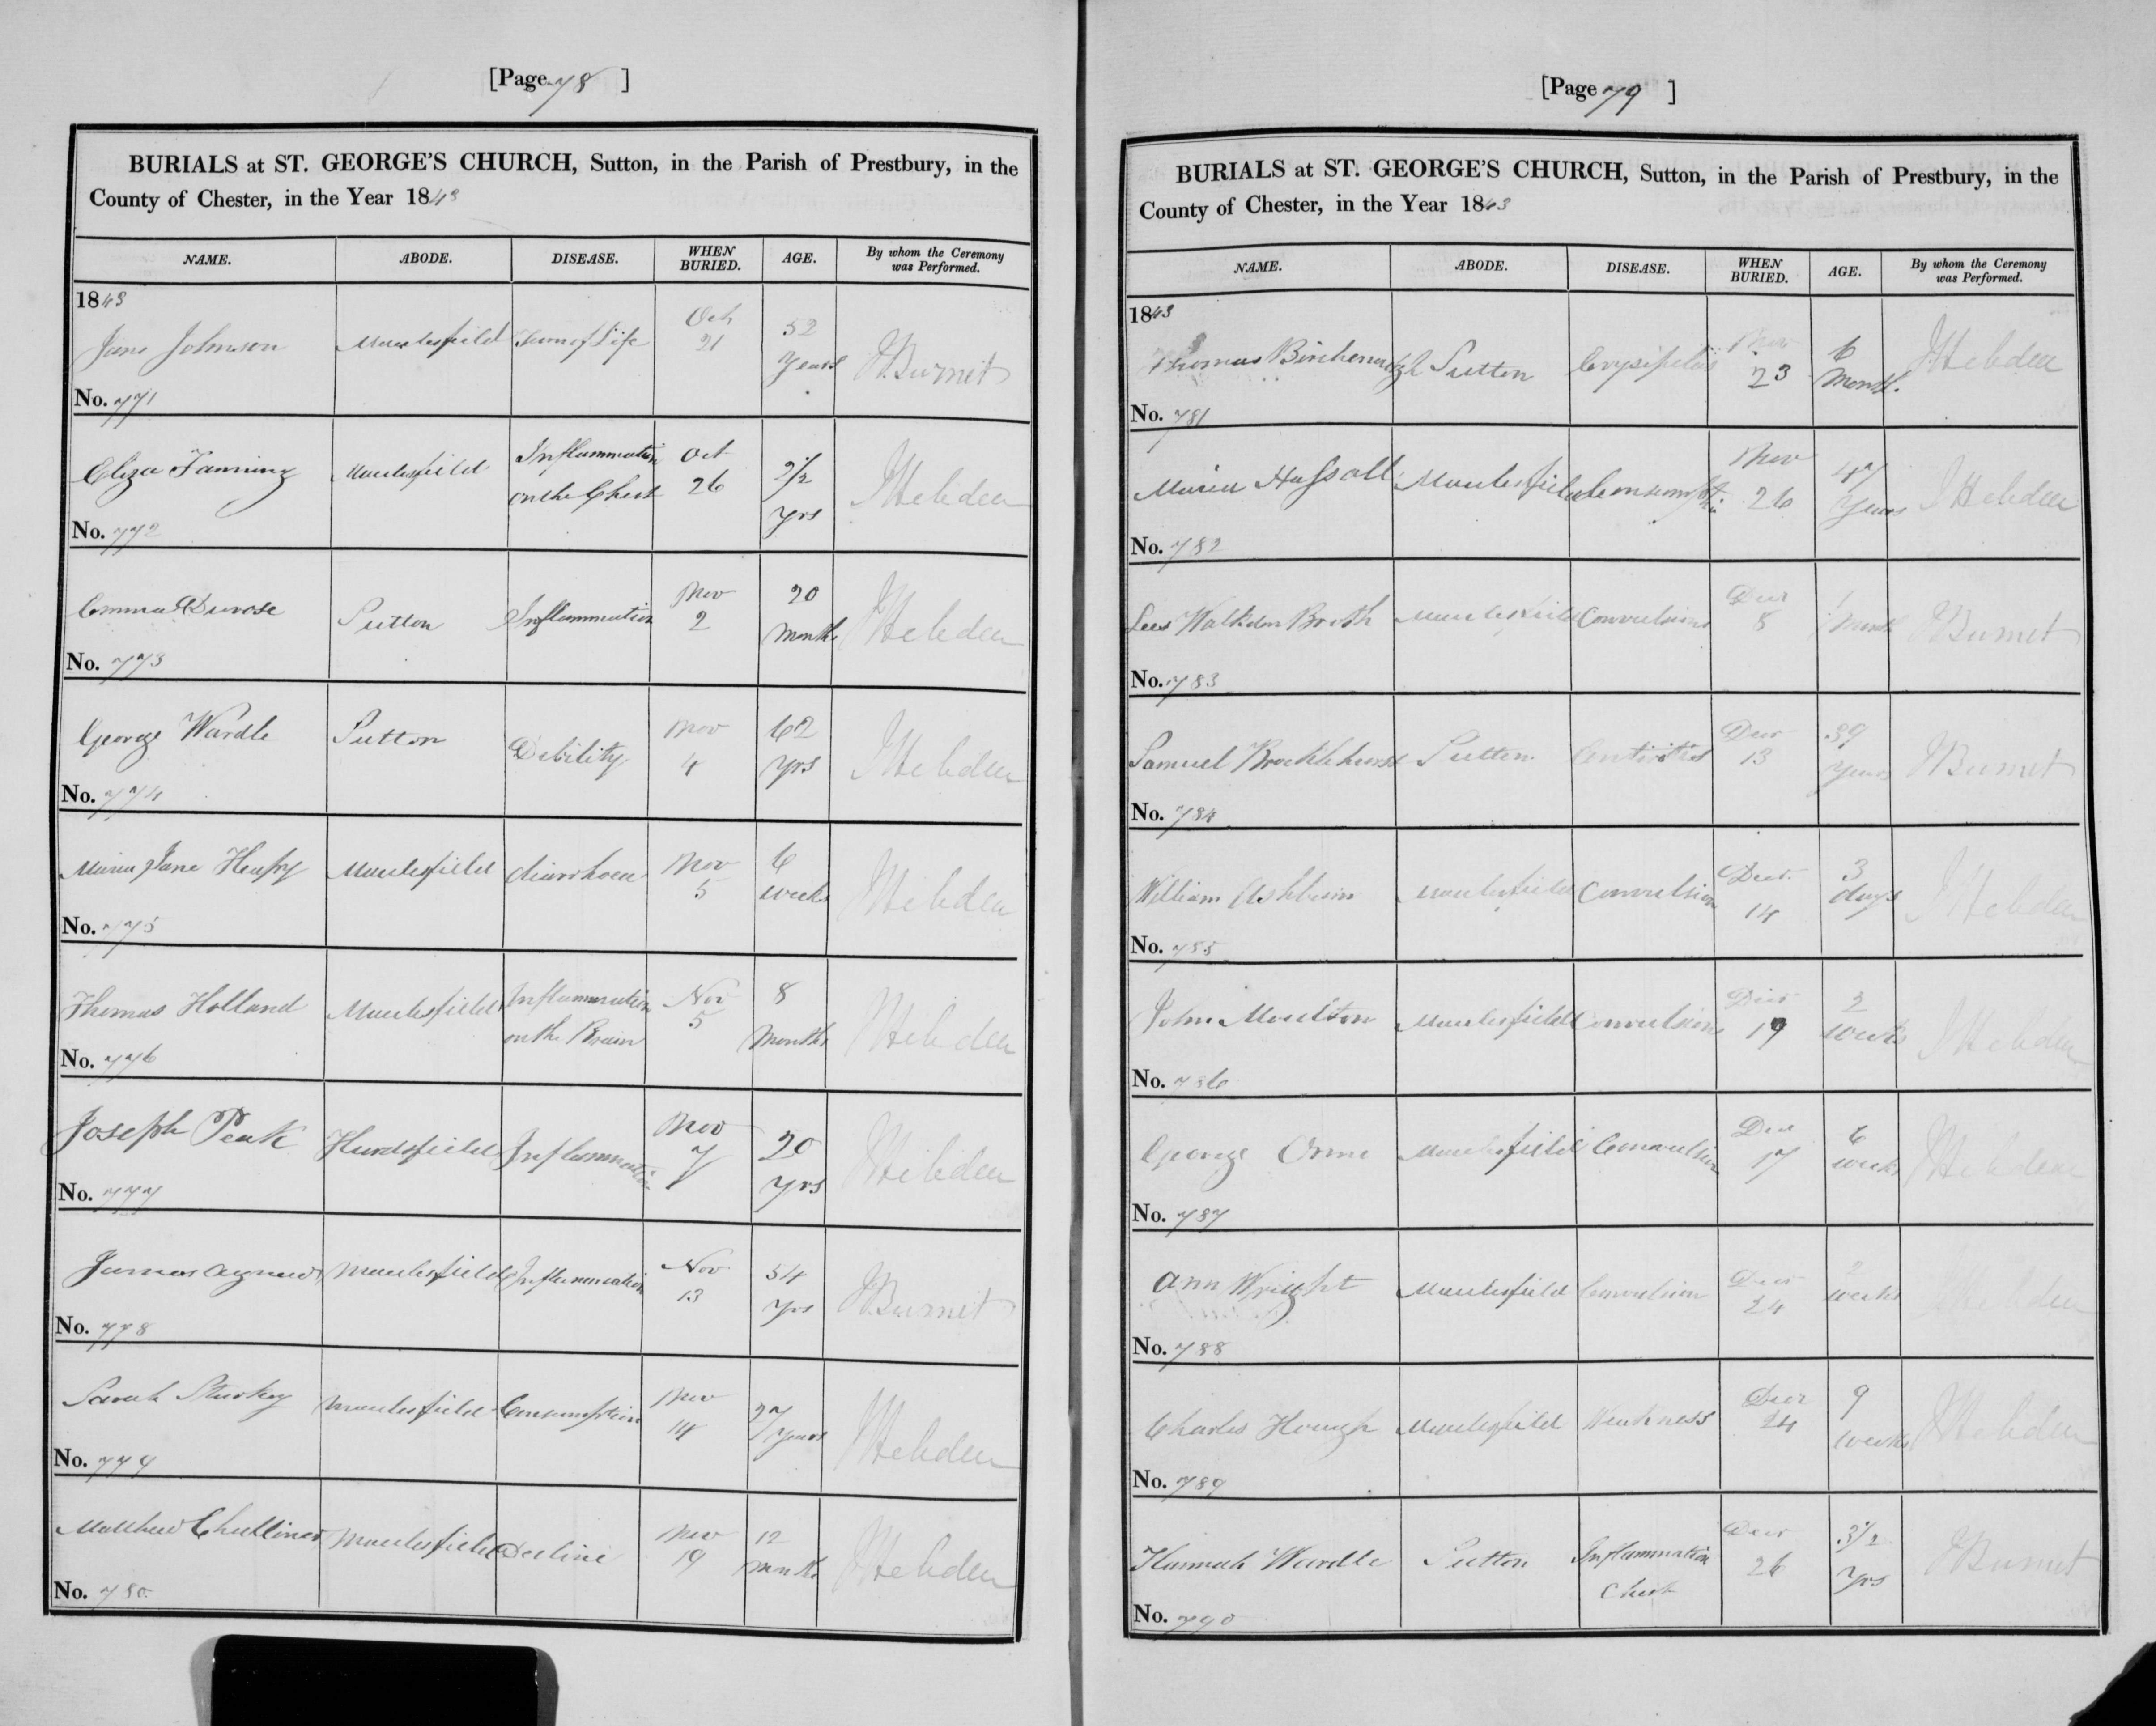 [Page 78 ]
BURIALS at ST. GEORGE'S CHURCH, Sutton, in the Parish of Prestbury, in the
County of Chester, in the Year 1843
NAME. ABODE. DISEASE. WHEN BURIED. AGE. By whom the Ceremony was Performed.
1843
Jane Johnson Macclesfield of Life Oct 21 52 Years J Burnet
No. 771
Eliza Fanning Macclesfield Inflammation on the Chest Oct 26 2½ yrs J Hebden
No. 772
Emma Durose Sutton Inflammation Nov 2 20 months J Hebden
No. 773
George Wardle Sutton Debility Nov 4 62 yrs J Hebden
No. 774
Maria Jane Heapy Macclesfield diarrhoea Nov 5 6 weeks J Hebden
No. 775
Thomas Holland Macclesfield Inflammation on the Brain Nov 5 8 months J Hebden
No. 776
Joseph Peak Hurdsfield Inflammation Nov 7 20 yrs J Hebden
No. 777
James Agnew Macclesfield Inflammation Nov 13 54 yrs J Burnet
No. 778
Sarah Macclesfield Consumption Nov 14 27 years J Hebden
No. 779
Matthew Challinor Macclesfield Decline Nov 19 12 months J Hebden
No. 780
[Page 79 ]
BURIALS at ST. GEORGE'S CHURCH, Sutton, in the Parish of Prestbury, in the
County of Chester, in the Year 1843
NAME. ABODE. DISEASE. WHEN BURIED. AGE. By whom the Ceremony was Performed.
1843
Thomas Birchenough Sutton Erysipelas Nov 23 6 months. J Hebden
No. 781
Maria Hassall Macclesfield Consumption Nov 26 47 years J Hebden
No. 782
Lees Walkden Booth Macclesfield Convulsions Decr 8 1 month J Burnet
No. 783
Samuel Brocklehurst Sutton Decr 13 39 years J Burnet
No. 784
William Ashburn Macclesfield Convulsion Decr 14 3 days J Hebden
No. 785
John Moulton Macclesfield Convulsions Decr 19 2 weeks J Hebden
No. 786
George Orme Macclesfield Convulsion Decr 17 6 weeks J Hebden
No. 787
Ann Wright Macclesfield Convulsion Decr 24 2 weeks J Hebden
No. 788
Charles Hough Macclesfield Weakness Decr 24 9 weeks J Hebden
No. 789
Hannah Wardle Sutton Inflammation Chest Decr 26 3½ yrs J Burnet
No. 790